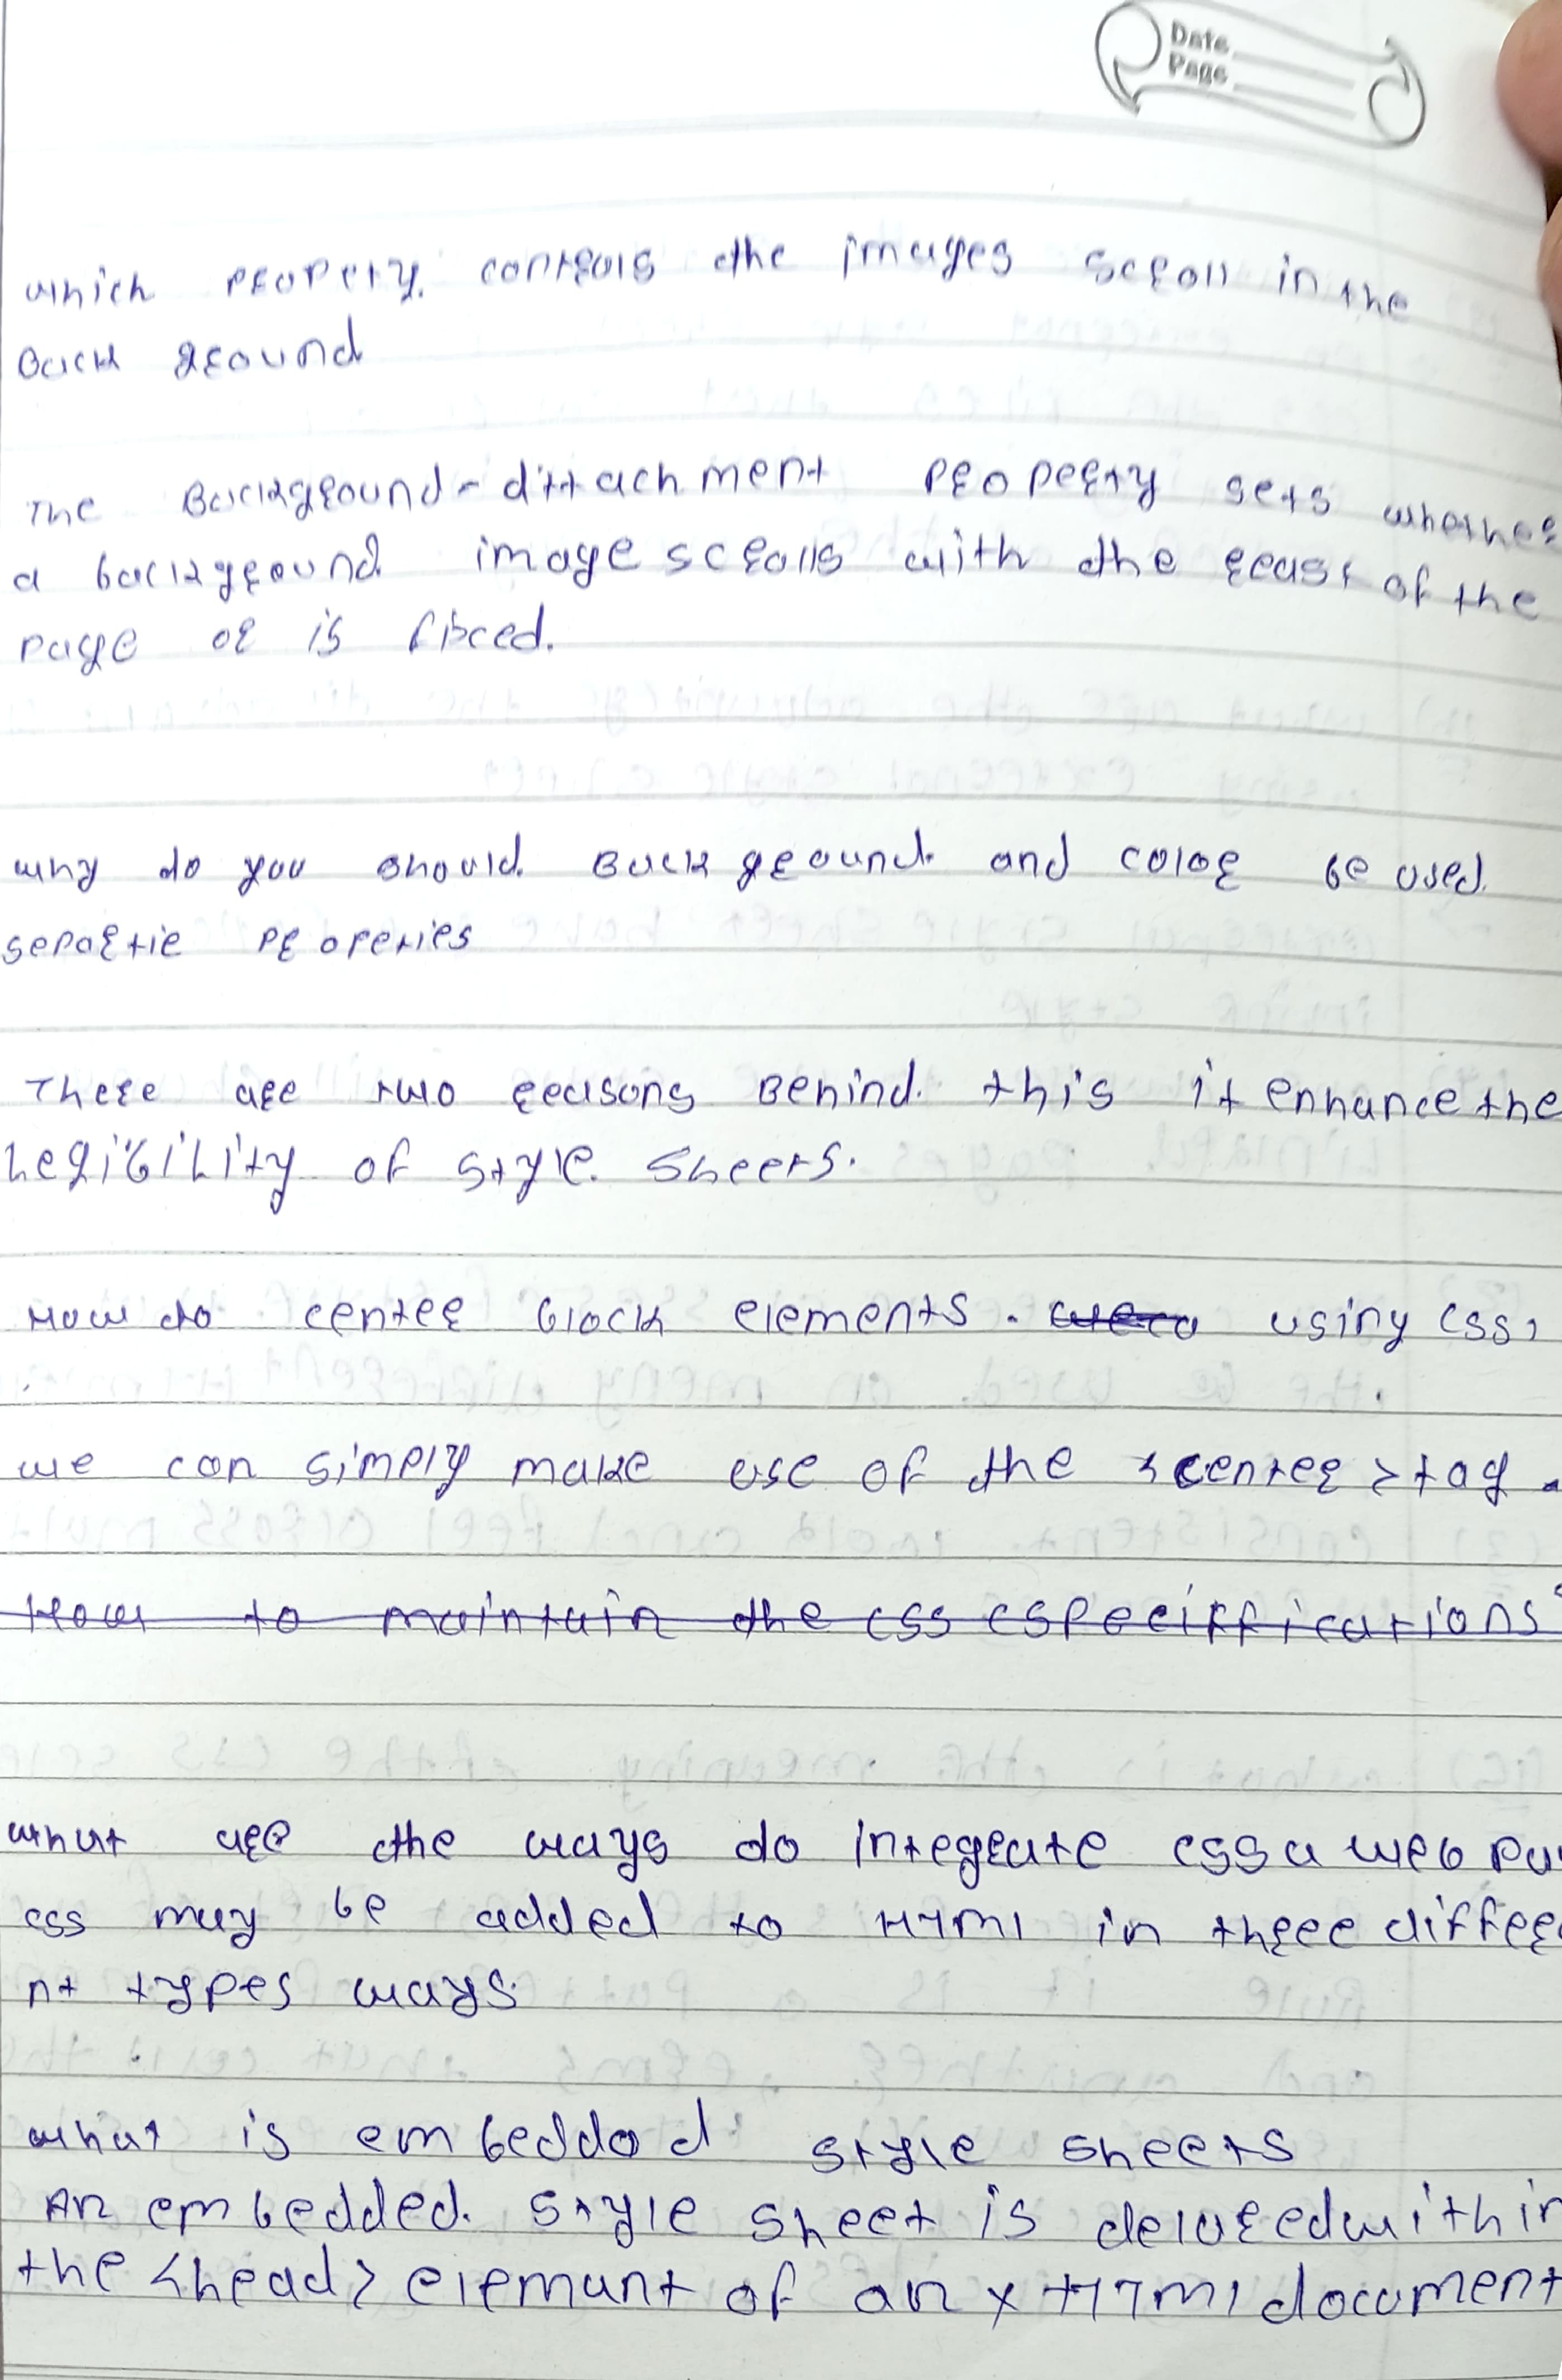 Date
Page
which property controls the images scroll in the
Back ground
The Background-attachment property sets whether
a background image scrolls with the reast of the
page or is fixced.
why do you should Back ground and color be used
separtie properies
There are two reasons Behind this it enhance the
Legibility of style sheets.
How do center block elements. using css,
we can simply make use of the <center> tag.
How to maintain the css cspeciffications
what are the ways do integrate css a web pa
css may be added to HTML in three differe
nt types ways.
what is embeddod style sheets
An embedded style sheet is delored within
the <head> elemunt of an x HTML document